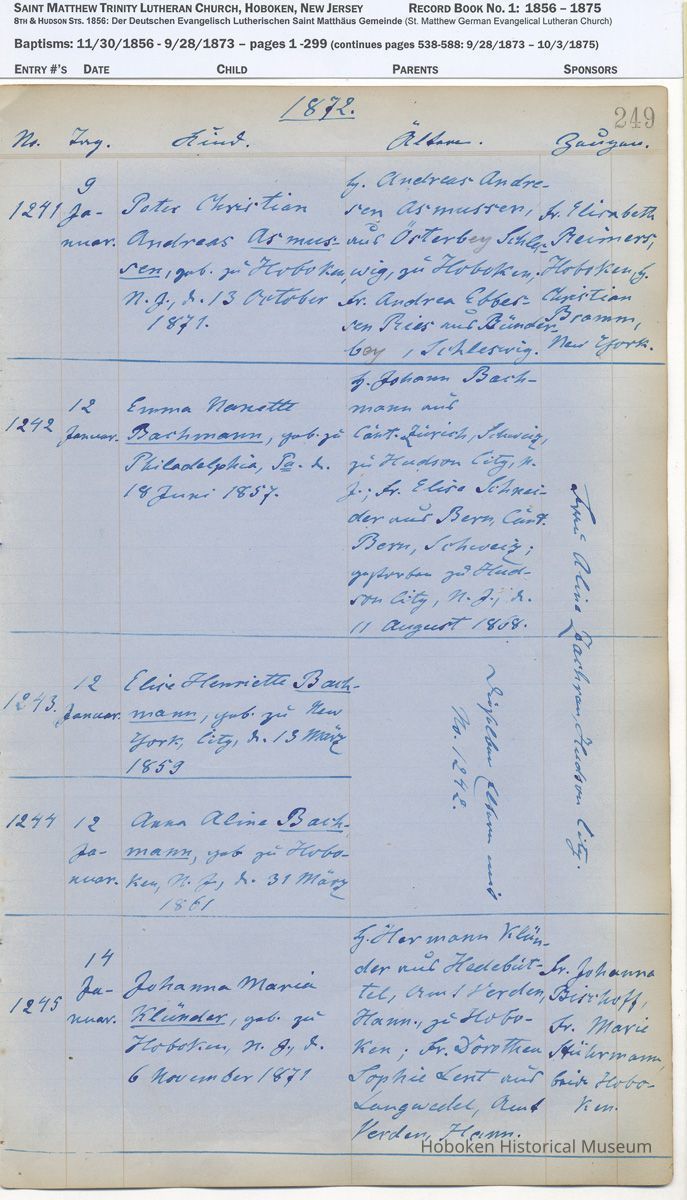 SAINT MATTHEW TRINITY LUTHERAN CHURCH, HOBOKEN, NEW JERSEY RECORD BOOK NO. 1: 1856 – 1875
8TH & HUDSON STS. 1856: Der Deutschen Evangelisch Lutherischen Saint Matthäus Gemeinde (St. Matthew German Evangelical Lutheran Church)
Baptisms: 11/30/1856 - 9/28/1873 – pages 1 -299 (continues pages 538-588: 9/28/1873 – 10/3/1875)
ENTRY #'S DATE CHILD PARENTS SPONSORS
1872. 249
No. Tag. Kind. Ältern. Zeugen.
1241
9
Ja-
nuar.
Peter Christian
Andreas Asmus-
sen, geb. zu Hoboken,
N. J., d. 13 October
1871.
H. Andreas Andre-
sen Asmussen,
aus Österbey Schles-
wig, zu Hoboken,
Fr. Andrea Ebbes-
sen Ries aus Bünder-
bey, Schleswig.
Fr. Elisabeth
Reimers,
Hoboken, H.
Christian
Bramm,
New York.
1242
12
Januar.
Emma Nanette
Bachmann, geb. zu
Philadelphia, Pa. d.
18 Juni 1857.
H. Johann Bach-
mann aus
Cant. Zürich, Schweiz,
zu Hudson City, N.
J.; Fr. Elise Schnei-
der aus Bern, Cant.
Bern, Schweiz;
gestorben zu Hud-
son City, N. J., d.
11 August 1868.
Frau Alina Hudson City.
1243.
12
Januar.
Elise Henriette Bach-
mann, geb. zu New
York, City, d. 13 März
1859
Dieselben Ältern wie
No. 1242.
1244
12
Ja-
nuar.
Anna Alina Bach-
mann, geb. zu Hobo-
ken, N. J., d. 31 März
1861
1245
14
Ja-
nuar.
Johanna Maria
Klünder, geb. zu
Hoboken, N. J., d.
6 November 1871
H. Hermann Klün-
der aus Hedebüt-
tel, Amt Verden,
Hann., zu Hobo-
ken; Fr. Dorothea
Sophie Lent aus
Langwedel, Amt
Verden, Hann.
Fr. Johanna
Bischoff,
Fr. Marie
Stührmann,
beide Hobo-
ken.
Hoboken Historical Museum